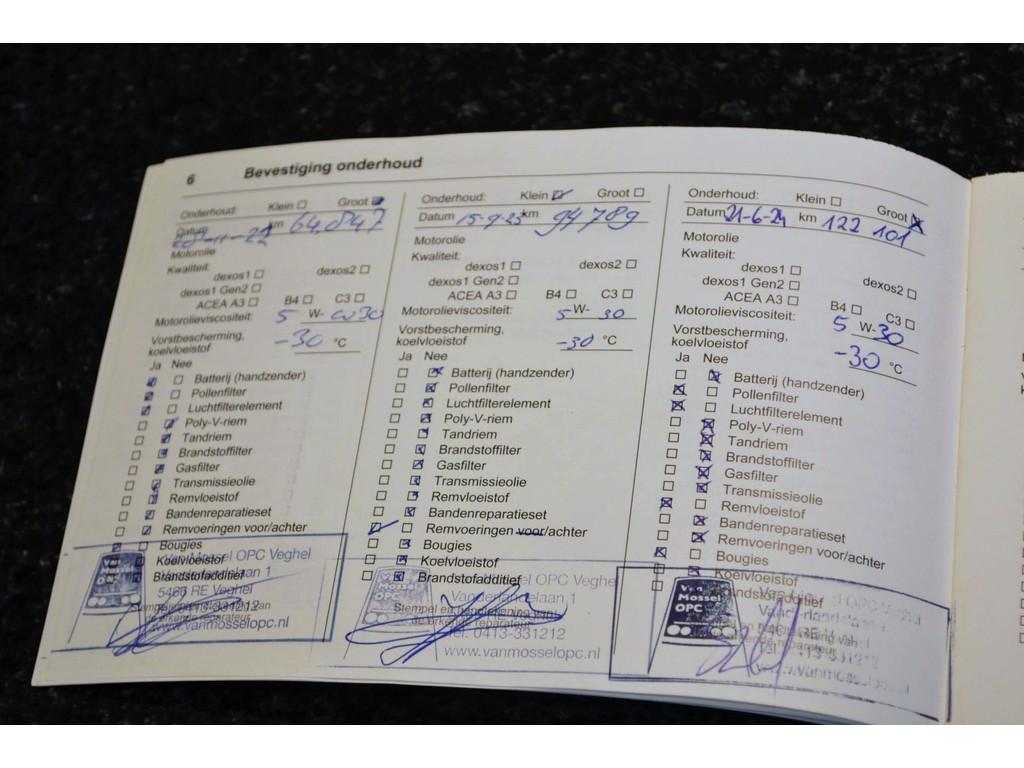 6 Bevestiging onderhoud
Onderhoud: Klein Groot
Datum 28-11-22 km 64.847
Motorolie
Kwaliteit:
dexos1 dexos2
dexos1 Gen2
ACEA A3 B4 C3
Motorolieviscositeit: 5 W- 30
Vorstbescherming,
koelvloeistof -30 °C
Ja Nee
Batterij (handzender)
Pollenfilter
Luchtfilterelement
Poly-V-riem
Tandriem
Brandstoffilter
Gasfilter
Transmissieolie
Remvloeistof
Bandenreparatieset
Remvoeringen voor/achter
Bougies
Koelvloeistof
Brandstofadditief
Van Mossel OPC
Van Mossel OPC Veghel
5466 RE Veghel
www.vanmosselopc.nl
Onderhoud: Klein Groot
Datum 15-9-23 km 94789
Motorolie
Kwaliteit:
dexos1 dexos2
dexos1 Gen2
ACEA A3 B4 C3
Motorolieviscositeit: 5 W- 30
Vorstbescherming,
koelvloeistof -30 °C
Ja Nee
Batterij (handzender)
Pollenfilter
Luchtfilterelement
Poly-V-riem
Tandriem
Brandstoffilter
Gasfilter
Transmissieolie
Remvloeistof
Bandenreparatieset
Remvoeringen voor/achter
Bougies
Koelvloeistof
Brandstofadditief
OPC Veghel
Stempel en handtekening van
de erkende reparateur
Tel. 0413-331212
www.vanmosselopc.nl
Onderhoud: Klein Groot
Datum 21-6-24 km 122 101
Motorolie
Kwaliteit:
dexos1 dexos2
dexos1 Gen2
ACEA A3 B4 C3
Motorolieviscositeit: 5 W-30
Vorstbescherming,
koelvloeistof -30 °C
Ja Nee
Batterij (handzender)
Pollenfilter
Luchtfilterelement
Poly-V-riem
Tandriem
Brandstoffilter
Gasfilter
Transmissieolie
Remvloeistof
Bandenreparatieset
Remvoeringen voor/achter
Bougies
Koelvloeistof
Brandstofadditief
Van Mossel OPC